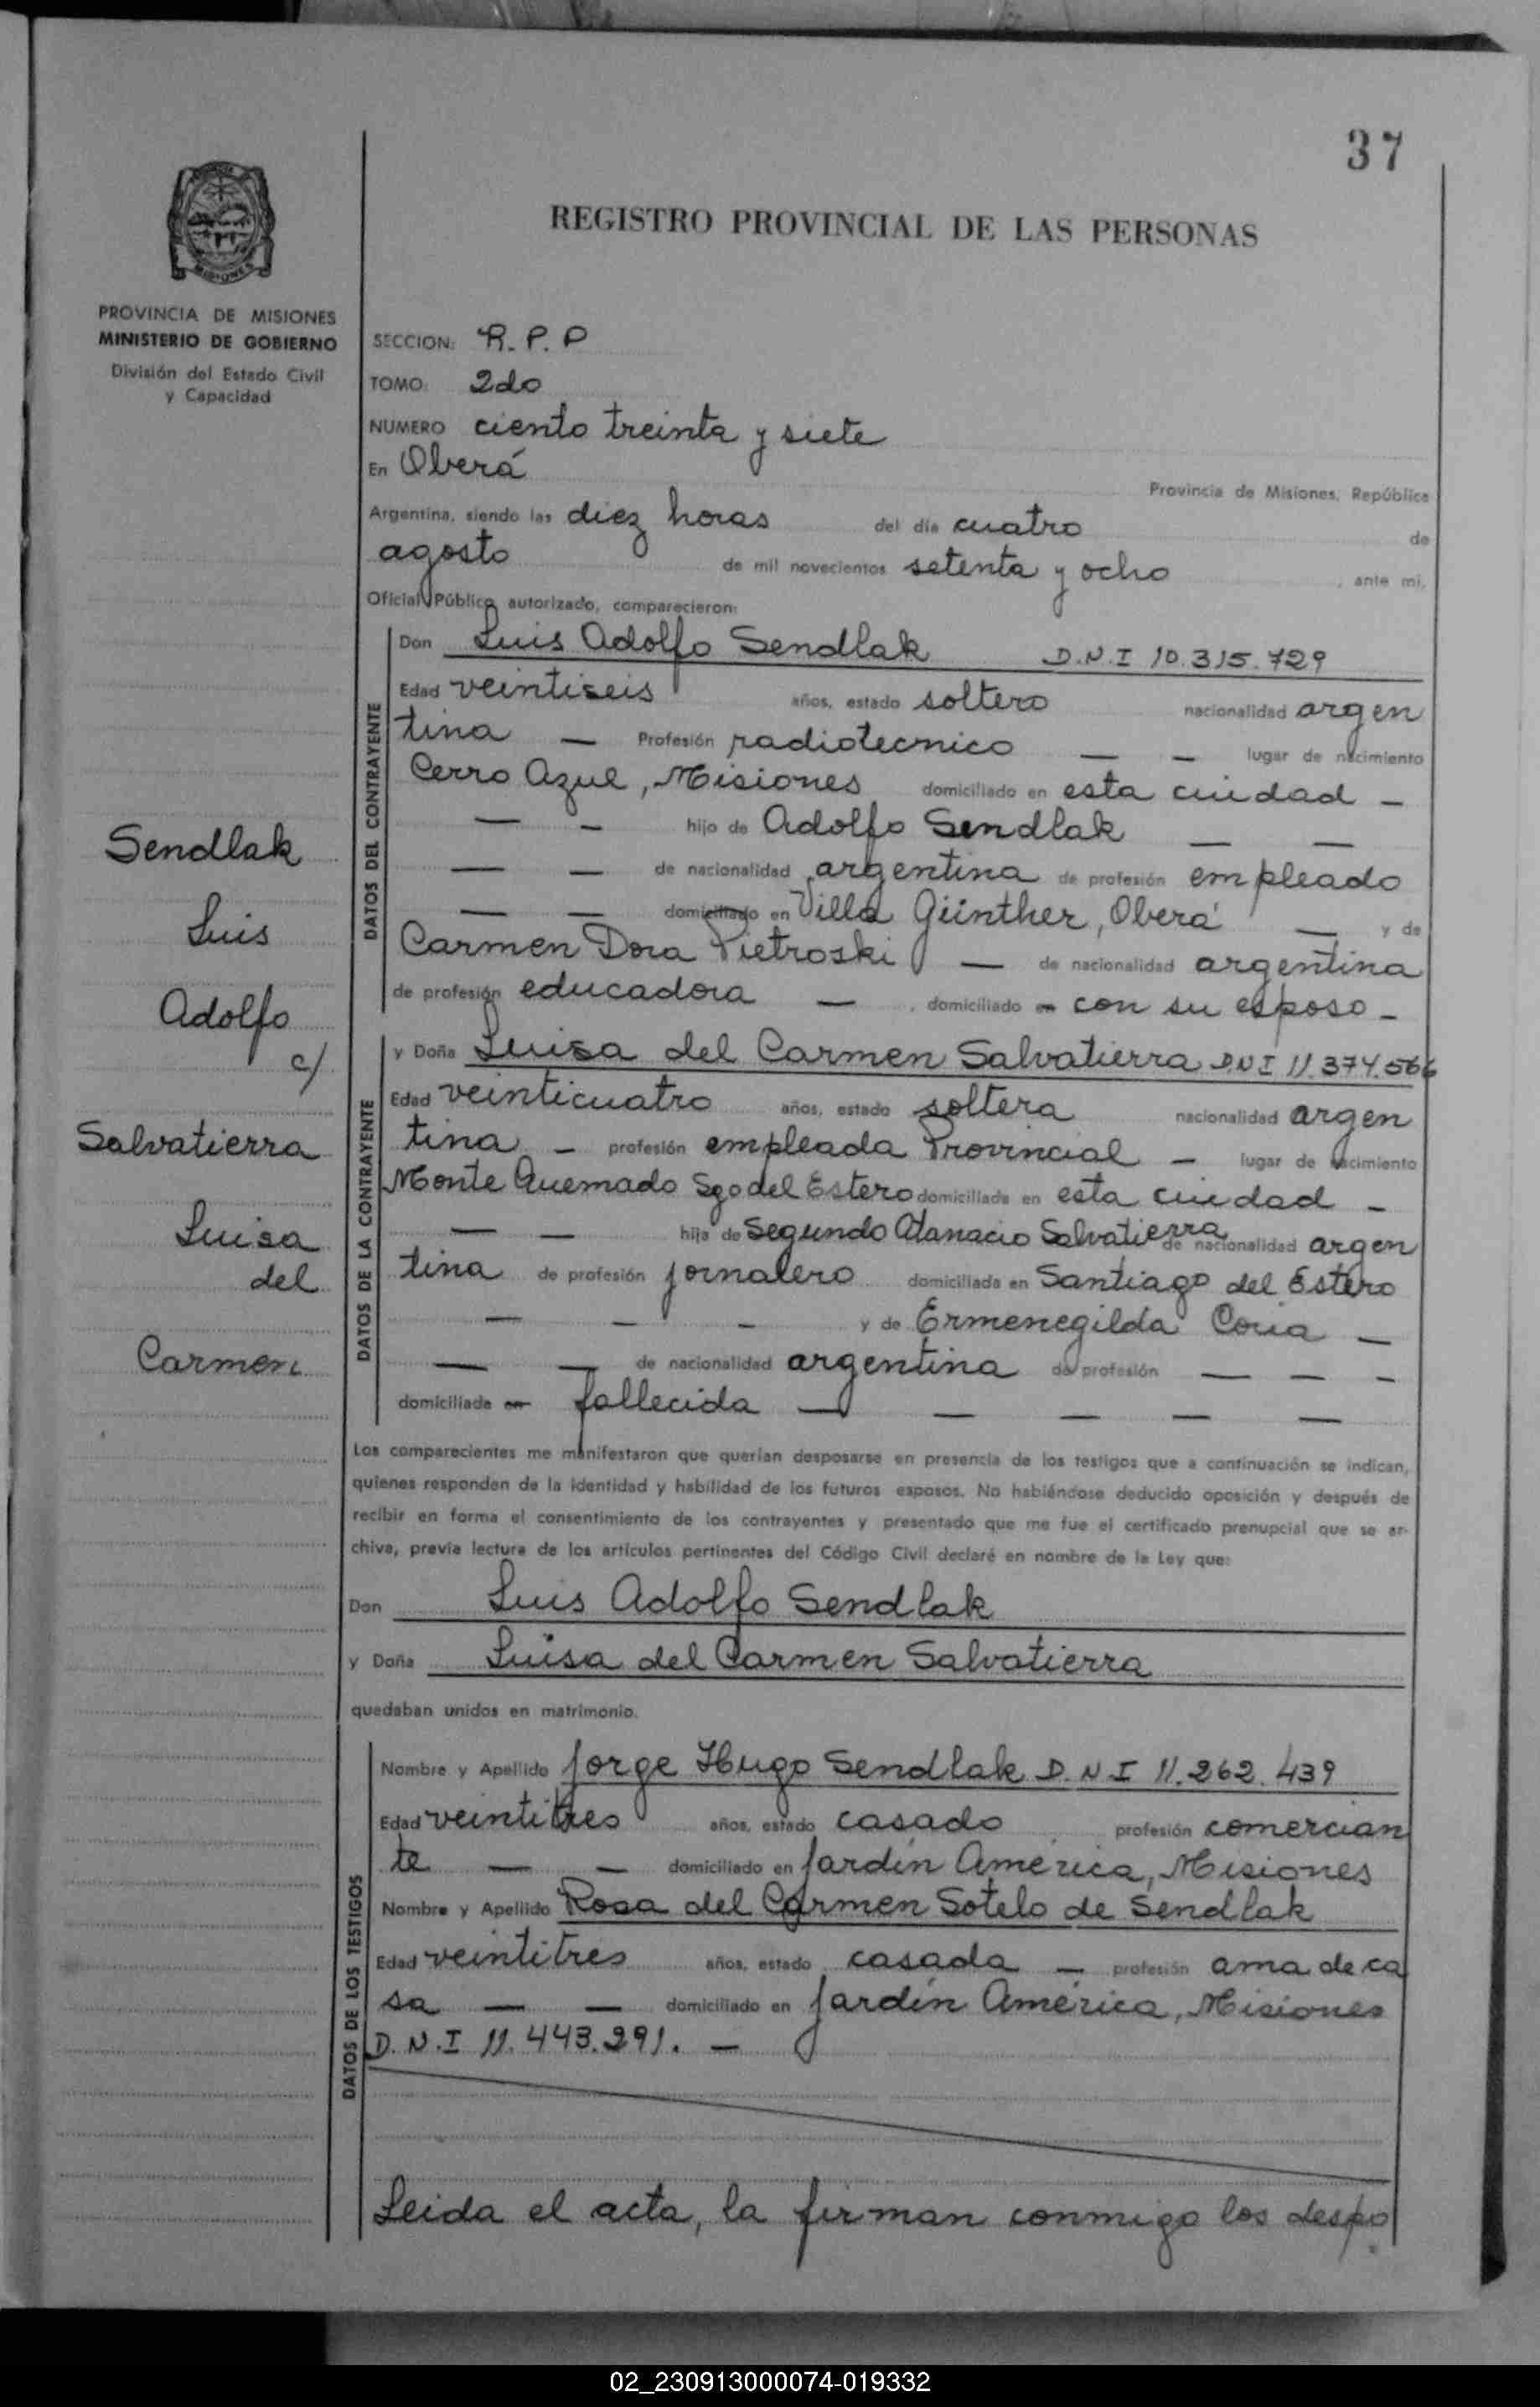 37
REGISTRO PROVINCIAL DE LAS PERSONAS
MISIONES
PROVINCIA DE MISIONES
MINISTERIO DE GOBIERNO
División del Estado Civil
y Capacidad
Sendlak
Luis
Adolfo
c/
Salvatierra
Luisa
del
Carmen
SECCION: R.P.P
TOMO: 2do
NUMERO ciento treinta y siete
En Oberá Provincia de Misiones, República
Argentina, siendo las diez horas del día cuatro de
agosto de mil novecientos setenta y ocho, ante mi,
Oficial Público autorizado, comparecieron:
DATOS DEL CONTRAYENTE
Don Luis Adolfo Sendlak D.N.I 10.315.729
Edad veintiseis años, estado soltero nacionalidad argen
tina — Profesión radiotecnico — — lugar de nacimiento
Cerro Azul, Misiones domiciliado en esta ciudad —
— — hijo de Adolfo Sendlak — —
— — de nacionalidad argentina de profesión empleado
— — domiciliado en Villa Günther, Oberá — y de
Carmen Dora Pietroski — de nacionalidad argentina
de profesión educadora — , domiciliado en con su esposo —
DATOS DE LA CONTRAYENTE
y Doña Luisa del Carmen Salvatierra D.N.I 11.374.566
Edad veinticuatro años, estado soltera nacionalidad argen
tina — profesión empleada Provincial — lugar de nacimiento
Monte Quemado Sgo del Estero domiciliada en esta ciudad —
— — hija de Segundo Atanacio Salvatierra de nacionalidad argen
tina de profesión jornalero domiciliada en Santiago del Estero
— — — y de Ermenegilda Coria —
— — de nacionalidad argentina de profesión — — —
domiciliada en fallecida — — — — —
Los comparecientes me manifestaron que querían desposarse en presencia de los testigos que a continuación se indican,
quienes responden de la identidad y habilidad de los futuros esposos. No habiéndose deducido oposición y después de
recibir en forma el consentimiento de los contrayentes y presentado que me fue el certificado prenupcial que se ar-
chiva, previa lectura de los artículos pertinentes del Código Civil declaré en nombre de la Ley que:
Don Luis Adolfo Sendlak
y Doña Luisa del Carmen Salvatierra
quedaban unidos en matrimonio.
DATOS DE LOS TESTIGOS
Nombre y Apellido Jorge Hugo Sendlak D.N.I 11.262.439
Edad veintitres años, estado casado profesión comercian
te — — domiciliado en Jardín América, Misiones
Nombre y Apellido Rosa del Carmen Sotelo de Sendlak
Edad veintitres años, estado casada — profesión ama de ca
sa — — domiciliado en Jardín América, Misiones
D.N.I 11.443.291. —
Leida el acta, la firman conmigo los despo
02_230913000074-019332